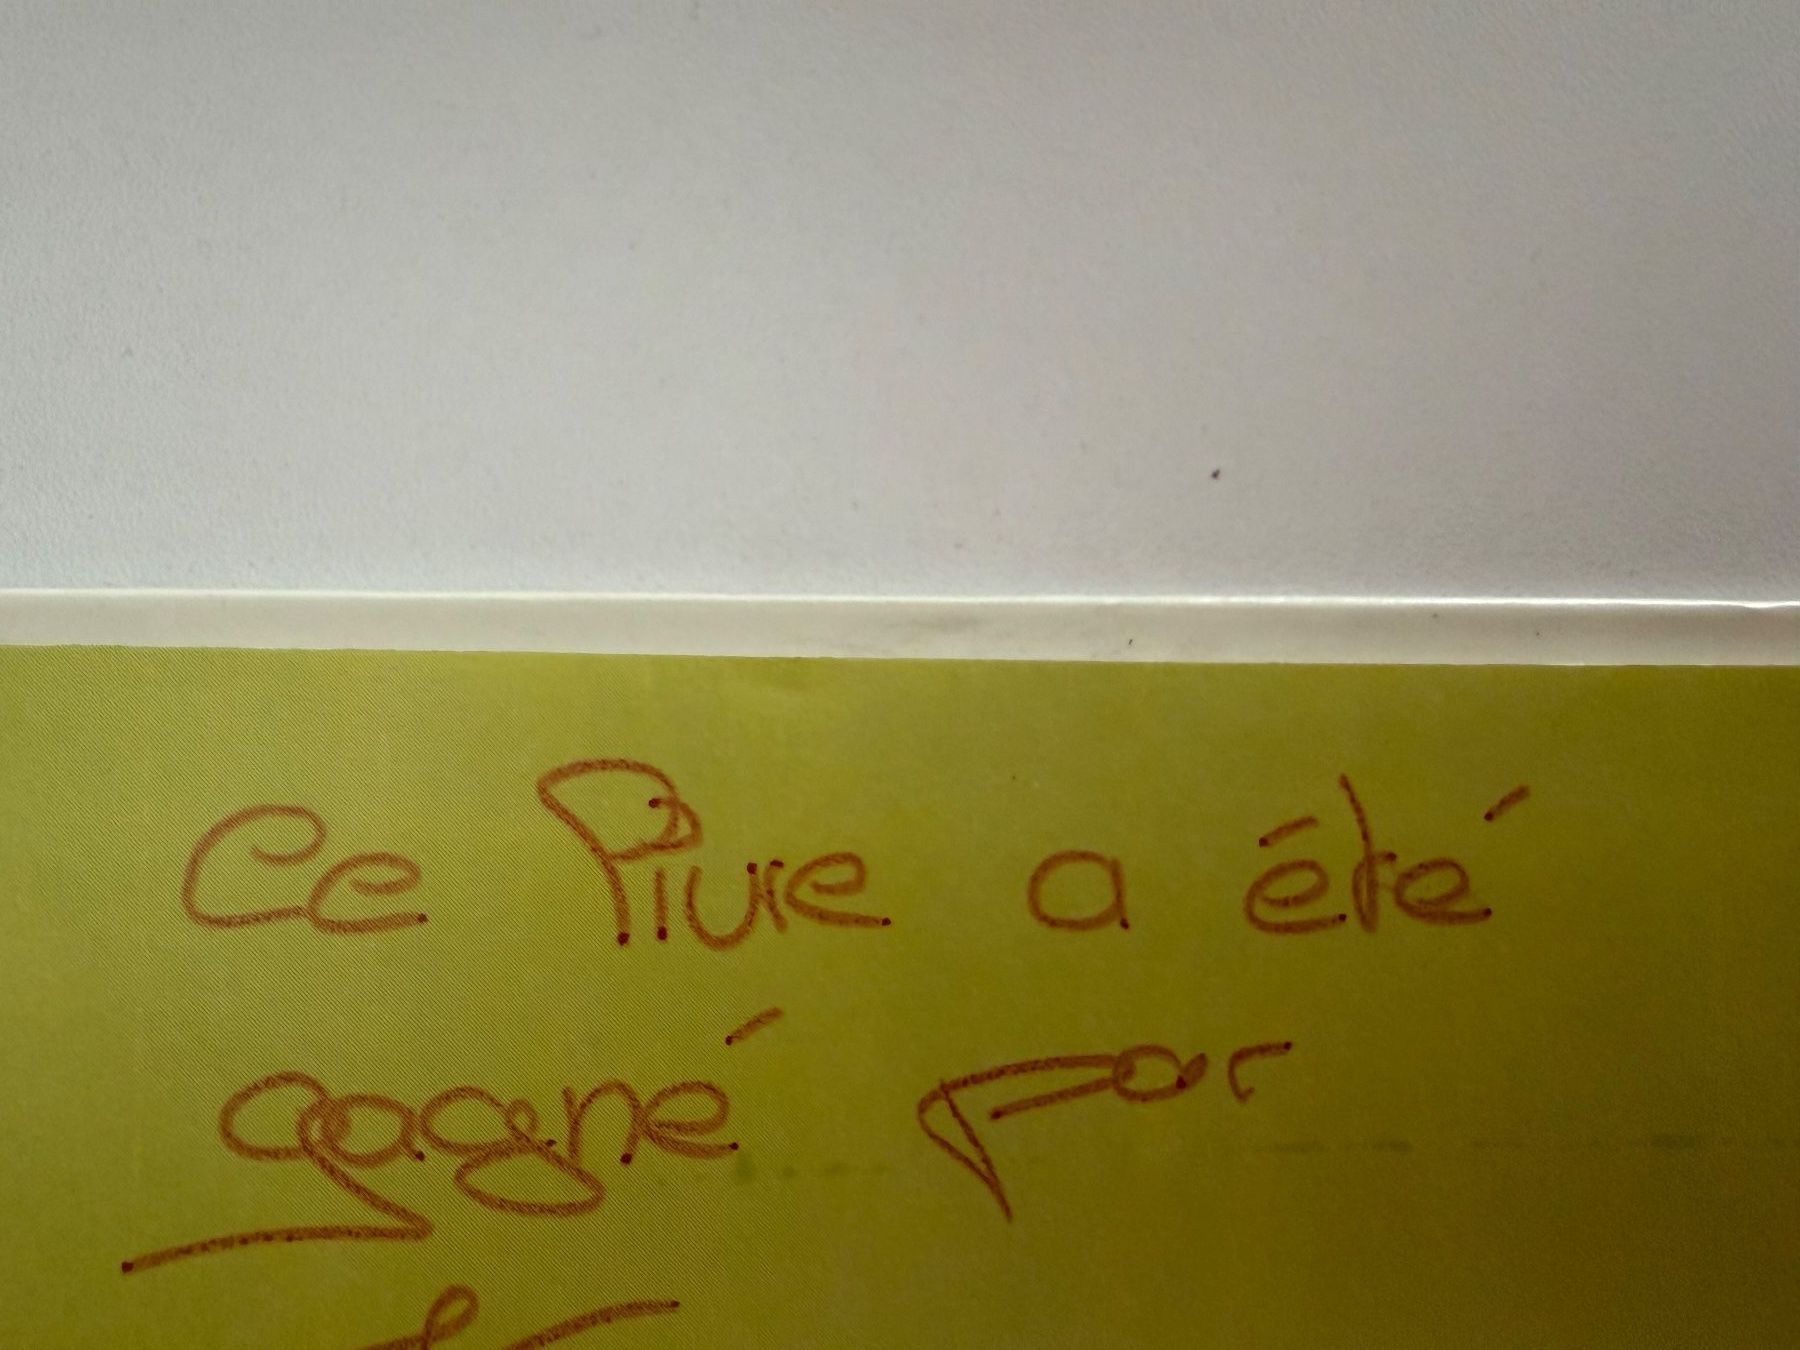 Ce livre a été
gagné par